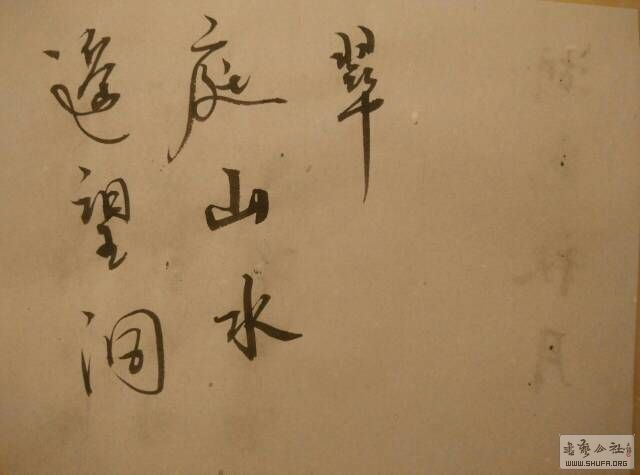 遥望洞
庭山水
翠
书艺公社
WWW.SHUFA.ORG